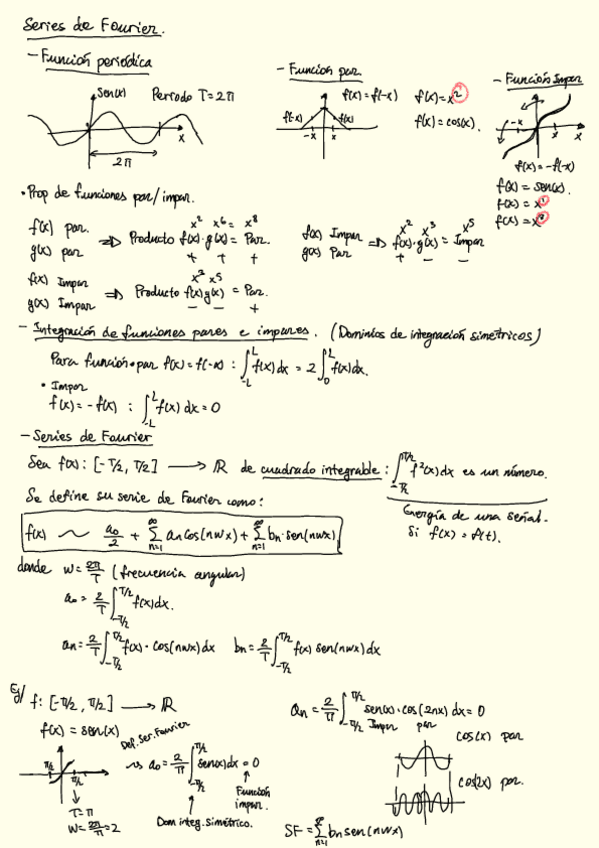 Series de Fourier.
- Función periódica
sen(x) Periodo T=2π
x
2π
- Función par
f(x)=f(-x)
f(-x) f(x)
-x x
f(x)=x²
f(x)=cos(x).
- Función Impar
-x x
f(x)=-f(-x)
f(x)=sen(x).
f(x)=x¹
f(x)=x³
• Prop de funciones par/impar.
x² x⁶ = x⁸
f(x) par.
g(x) par ⇒ Producto f(x)·g(x) = Par.
+ + +
x² x³ x⁵
f(x) Impar
g(x) Par ⇒ f(x)·g(x) = Impar
+ - -
x³ x⁵
f(x) Impar
g(x) Impar ⇒ Producto f(x)g(x) = Par.
- - +
- Integración de funciones pares e impares. (Dominios de integración simétricos)
Para función • par f(x)=f(-x) : ∫_{-L}^{L} f(x)dx = 2∫_{0}^{L} f(x)dx.
• Impar
f(x)=-f(x) : ∫_{-L}^{L} f(x)dx=0
- Series de Fourier
Sea f(x): [-T/2, T/2] → ℝ de cuadrado integrable : ∫_{-T/2}^{T/2} f²(x)dx es un número.
Energía de una señal.
Si f(x) = f(t).
Se define su serie de Fourier como:
f(x) ~ a₀/2 + ∑_{n=1}^{∞} an cos(nwx) + ∑_{n=1}^{∞} bn·sen(nwx)
donde w = 2π/T (frecuencia angular)
a₀ = 2/T ∫_{-T/2}^{T/2} f(x)dx.
an = 2/T ∫_{-T/2}^{T/2} f(x)·cos(nwx)dx bn = 2/T ∫_{-T/2}^{T/2} f(x) sen(nwx)dx
Ej/ f: [-π/2, π/2] → ℝ
f(x) = sen(x)
π/2
π/2
T=π
w = 2π/π = 2
Def. Ser. Fourier
a₀ = 2/π ∫_{-π/2}^{π/2} sen(x)dx = 0
Función
impar.
Dom integ. Simétrico.
an = 2/π ∫_{-π/2}^{π/2} sen(x)·cos(2nx)dx = 0
Impar par
cos(x) par
cos(2x) par.
SF = ∑_{n=1}^{∞} bn sen(nwx)